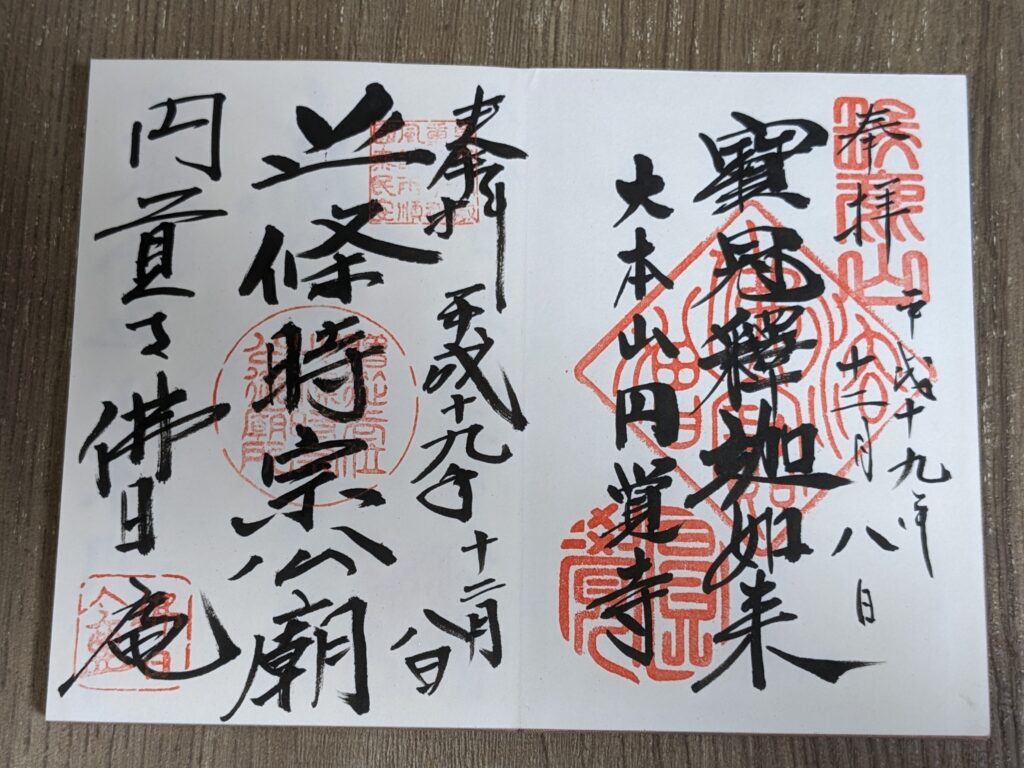 奉拝 平成十九年
十二月八日
寳冠釋迦如来
大本山円覚寺
瑞鹿山
奉拝 平成十九年 十二月
八日
北條時宗公廟
円覚寺佛日庵